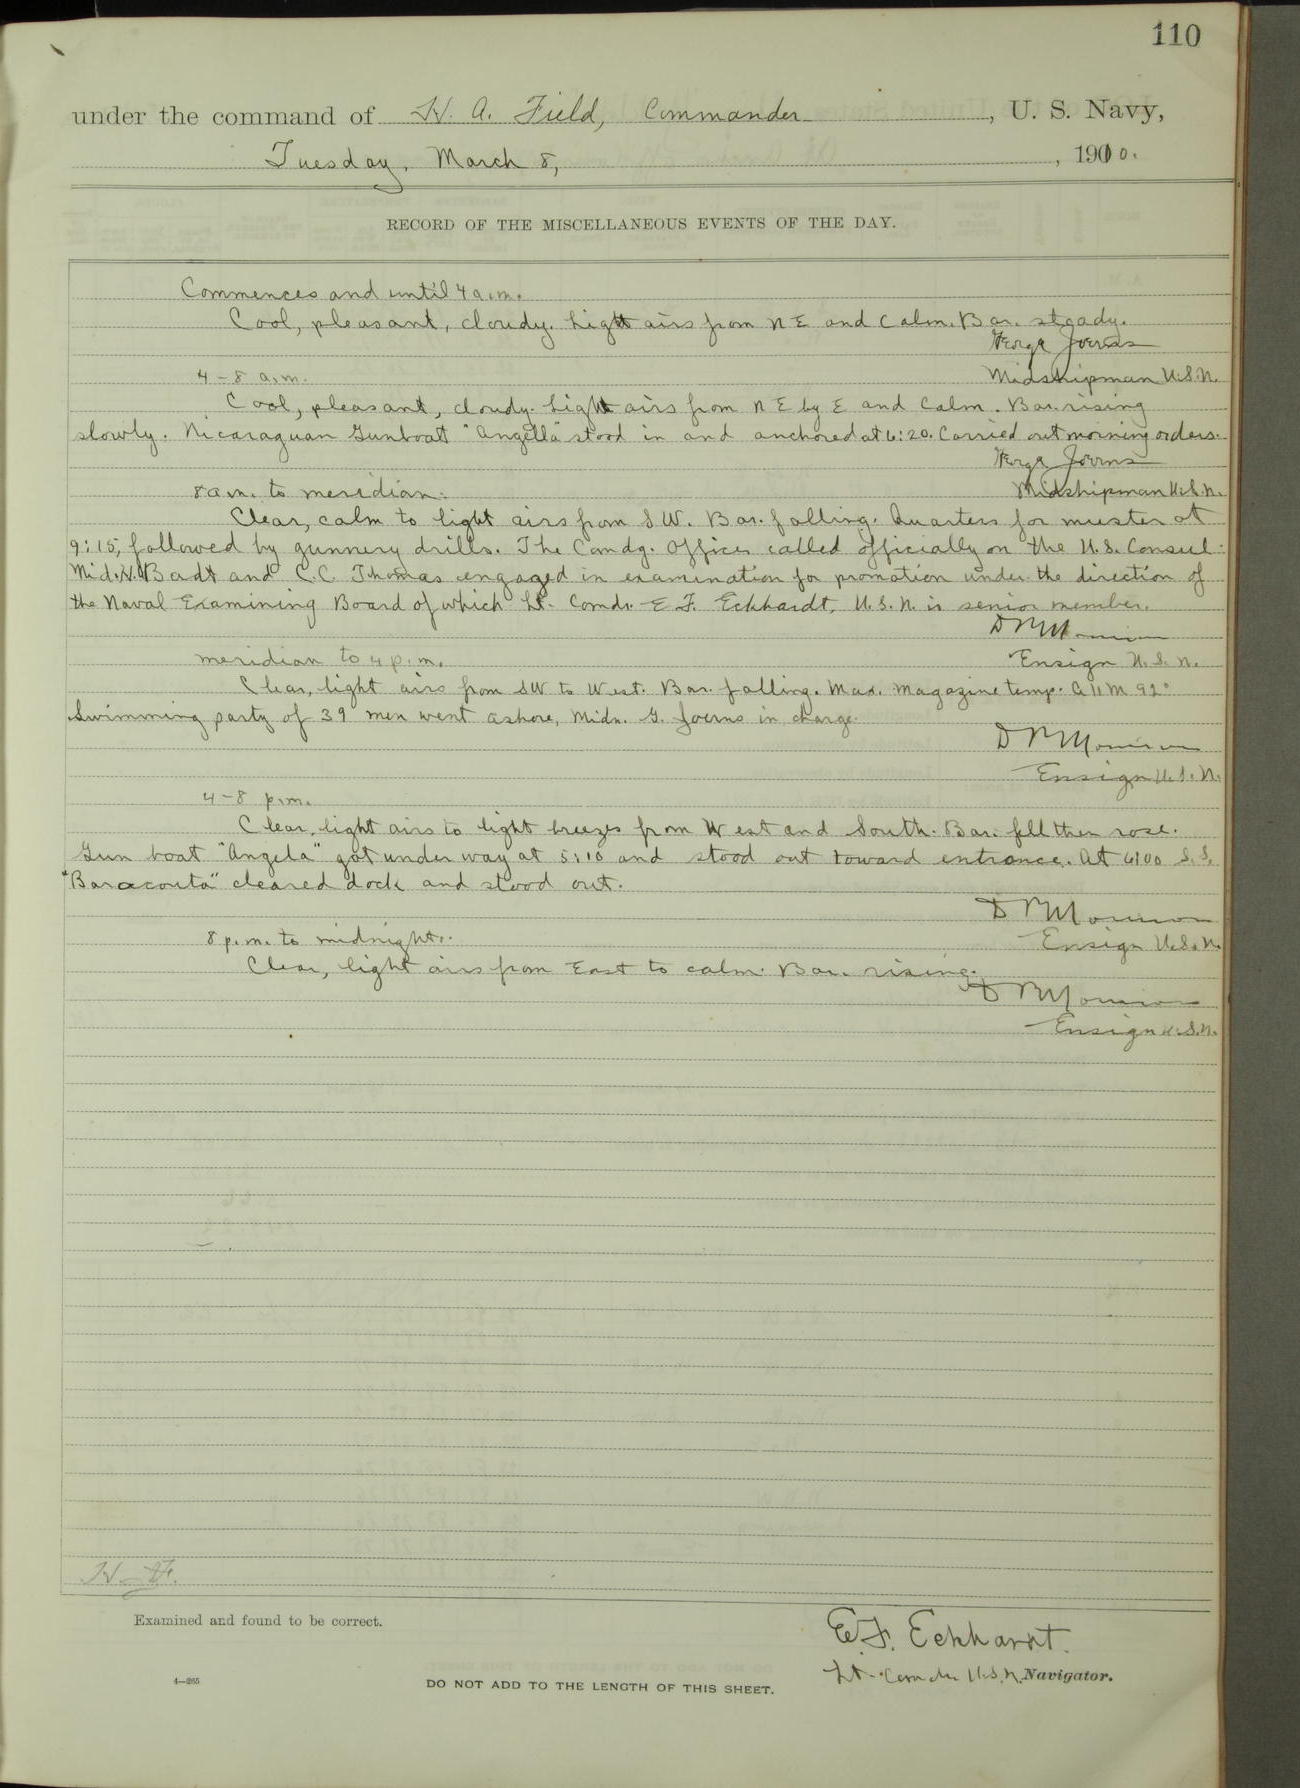 110
under the command of H. A. Field, Commander, U. S. Navy,
Tuesday, March 8, 1910.
RECORD OF THE MISCELLANEOUS EVENTS OF THE DAY.
Commences and until 4 a.m.
Cool, pleasant, cloudy. Light airs from NE and calm. Bar. steady.
Joerns
4-8 a.m.
Midshipman U.S.N.
Cool, pleasant, cloudy. Light airs from NE by E and calm. Bar. rising
slowly. Nicaraguan Gunboat "Angella" stood in and anchored at 6:20. Carried out morning orders.
Joerns
8 a.m. to meridian.
Midshipman U.S.N.
Clear, calm to light airs from SW. Bar. falling. Quarters for muster at
9:15, followed by gunnery drills. The Comdg. Officer called officially on the U.S. Consul.
Mid. Badt and C.C. Thomas engaged in examination for promotion under the direction of
the Naval Examining Board of which Lt. Comdr. E F. Eckhardt, U.S.N. is senior member.
meridian to 4 p.m.
Ensign U.S.N.
Clear, light airs from SW to West. Bar. falling. Max. Magazine temp. A 11 M 92°
Swimming party of 39 men went ashore, Midn. G. Joerns in charge.
Ensign U.S.N.
4-8 p.m.
Clear, light airs to light breezes from West and South. Bar. fell then rose.
Gun boat "Angela" got underway at 5:10 and stood out toward entrance. At 6:00 S.S.
"Baracouta" cleared dock and stood out.
8 p.m. to midnight.
Ensign U.S.N.
Clear, light airs from East to calm. Bar. rising.
Ensign U.S.N.
Examined and found to be correct.
E. F. Eckhardt.
Lt-Comdr U.S.N. Navigator.
4—265
DO NOT ADD TO THE LENGTH OF THIS SHEET.